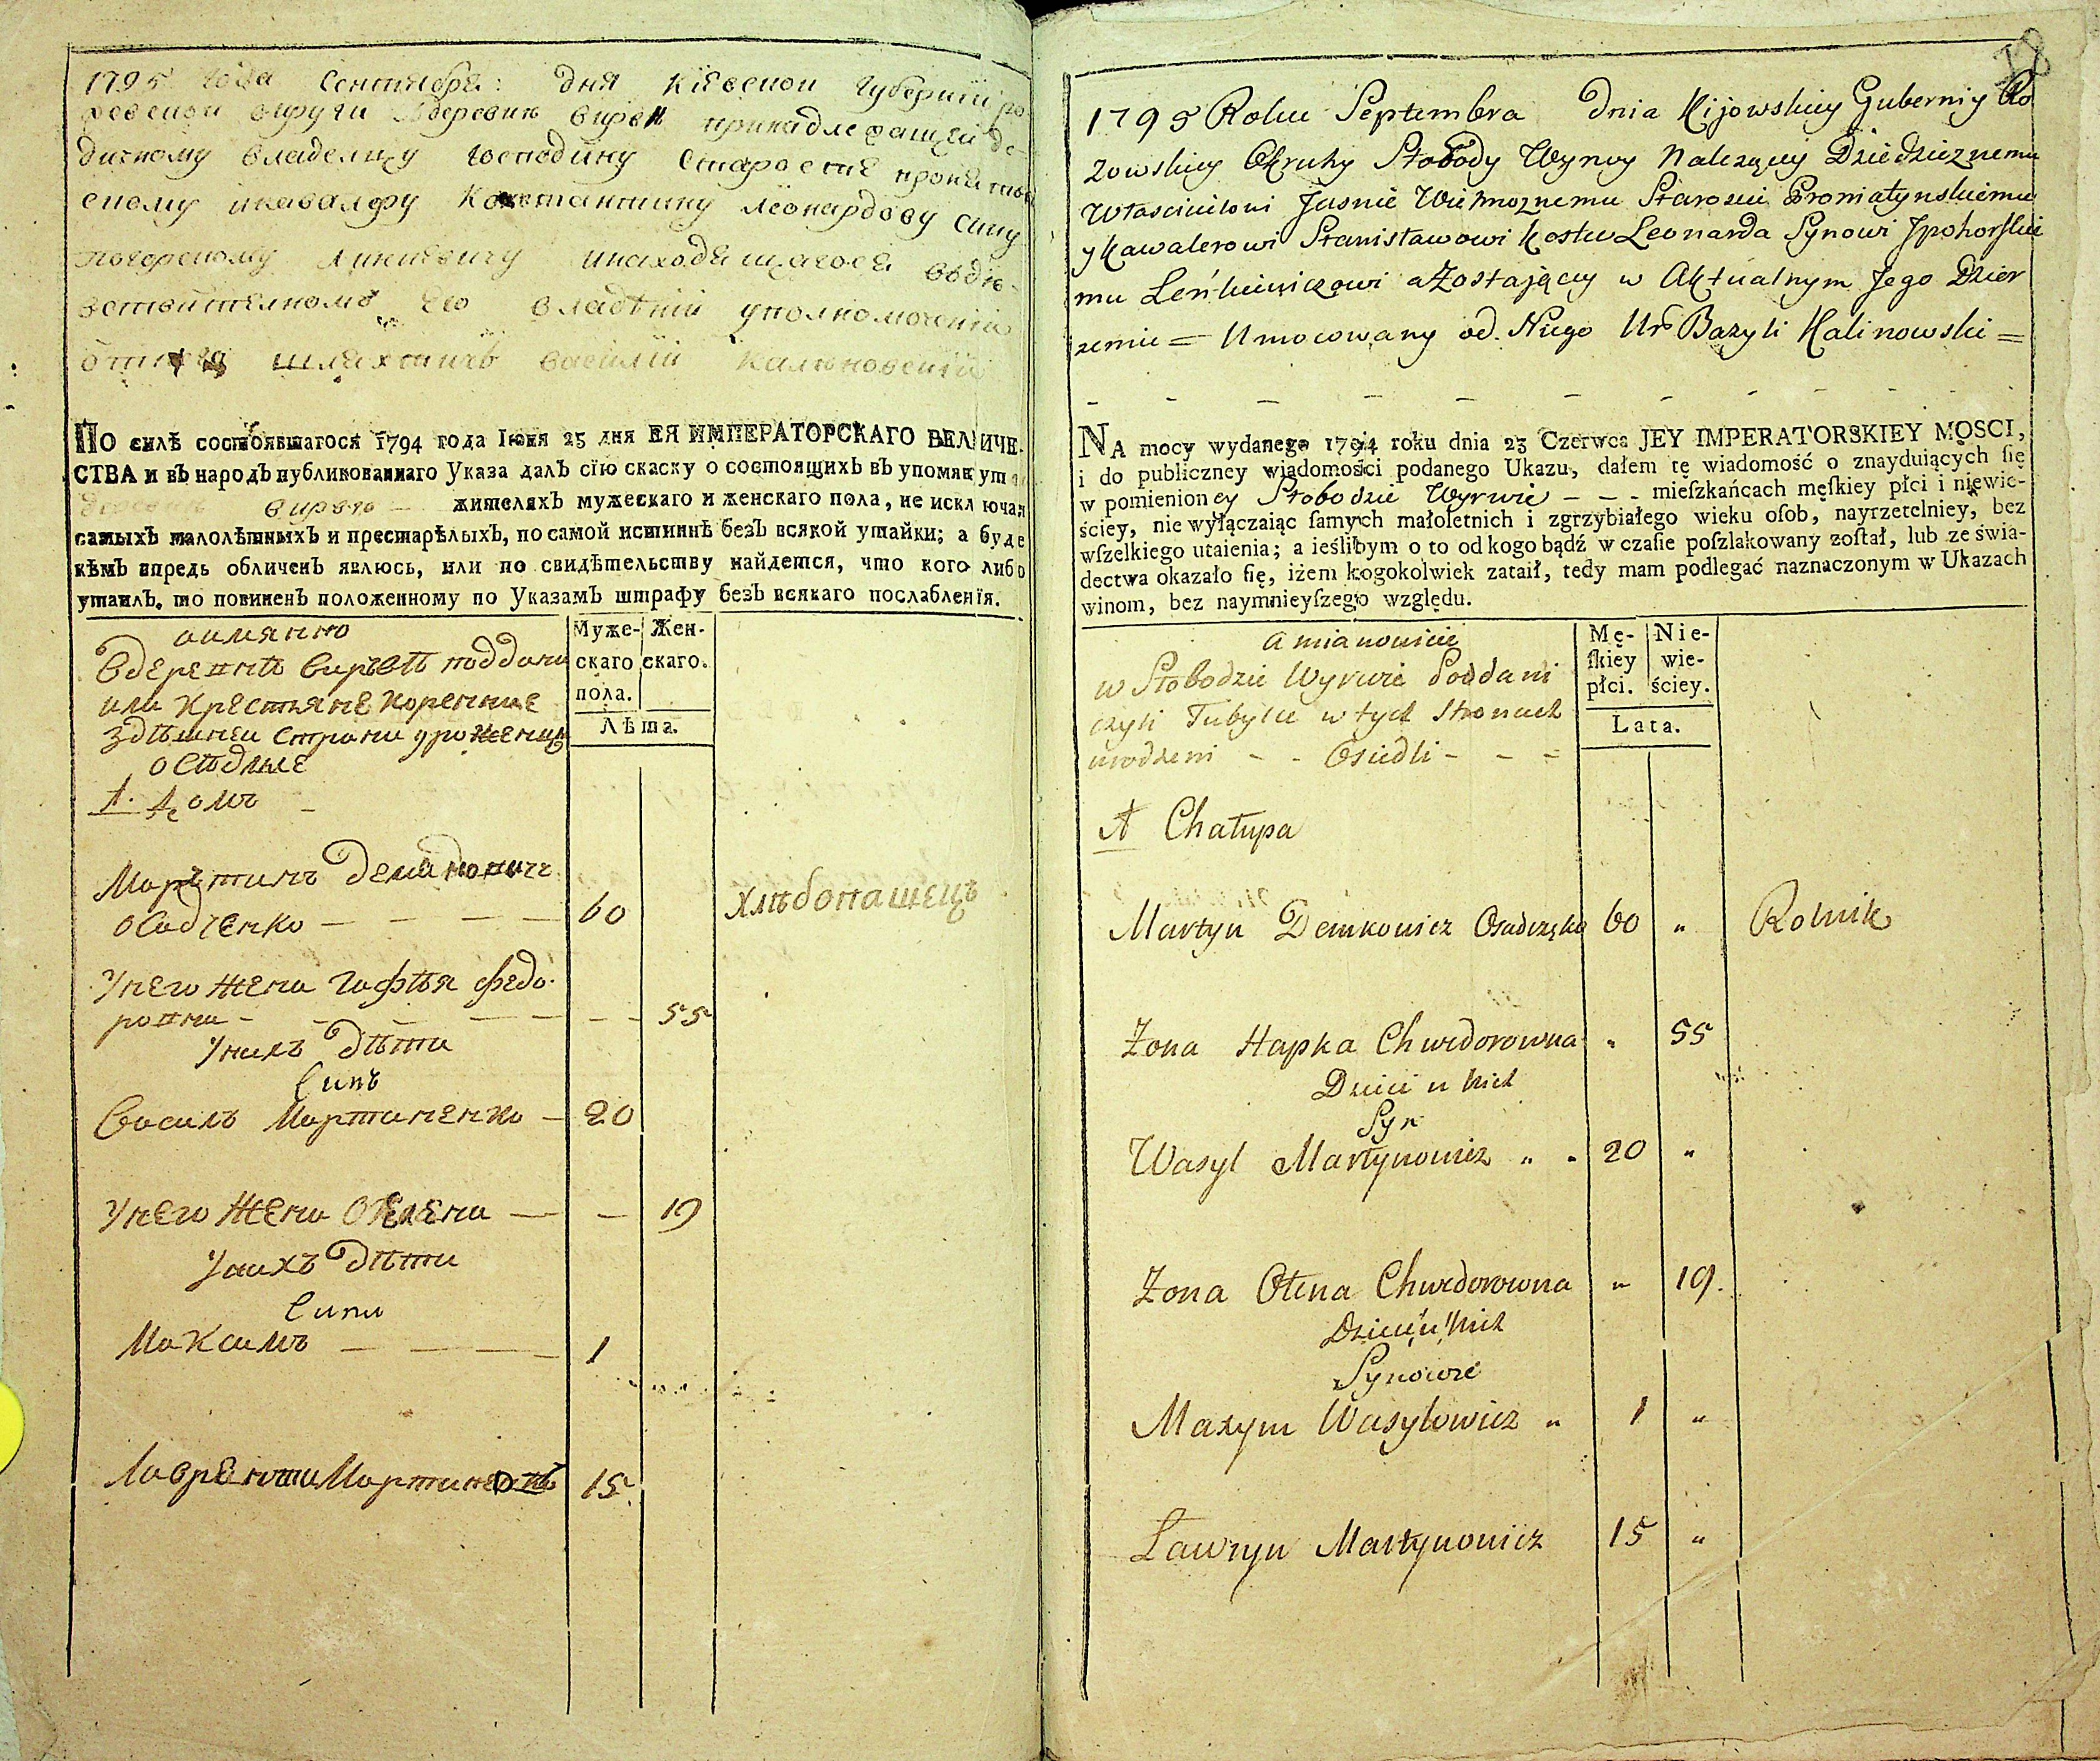 1795 года Сентября: дня Кіевскои Губерніи ро
ревскои округи деревни вирвы принадлежащеи де-
дичному владелцу Господину Старосте
скому икавалеру Константину Леонардову сину
погорскому линкевичу инаходящагося вдѣ-
вствителномъ его владѣніи уполномоченій
отнего шляхтичъ василій калиновскій
ПО силѣ состоявшагося 1794 года Іюня 23 дня ЕЯ ИМПЕРАТОРСКАГО ВЕЛИЧЕ-
СТВА и въ народъ публикованнаго Указа далъ сїю скаску о состоящихъ въ упомянут
деревнѣ вирвѣ — жителяхъ мужескаго и женскаго пола, не исключая
самыхъ малолѣтныхъ и престарѣлыхъ, по самой истиннѣ безъ всякой утайки; а буде
кѣмъ впредь обличенъ явлюсь, или по свидѣтельству найдется, что кого либо
утаилъ, то повиненъ положенному по Указамъ штрафу безъ всякаго послабленїя.
аимянно
Вдеревнѣ вирвѣ поддани
или крестьяне коренние
здѣшнеи страни уроженци
осѣдлие
Муже- Жен-
скаго скаго.
пола.
Лѣта.
1. домъ —
Мартинъ демкович
осадченко — — — — 60 хлѣбопашецъ
Унего жена гафѣя федо-
ровна — — — — 55
Унихъ дѣти
Синъ
Василъ Мартиненко — 20
Унего жена Олена — — 19
Унихъ дѣти
Сини
Максимъ — — — 1
Лаврентии Мартиненко 15
18
1795 Roku Septembra dnia Kijowskiey Guberniy Ro
zowskiey Okruhy Słobody Wyrwy Nalezącey Dziedzicznemu
Włascicielowi Jasnie Wielmoznemu Staroscie Proniatynskiemu
y Kawalerowi Stanisławowi Kostce Leonarda Synowi Jpohorskie
mu Leńkiewiczowi a Zostającey w Aktualnym Jego Dzier
zeniu = Umocowany od Niego Ur Bazyli Kalinowski =
- - - - - - - - - -
NA mocy wydanego 1794 roku dnia 23 Czerwca JEY IMPERATORSKIEY MOSCI,
i do publiczney wiadomości podanego Ukazu, dałem tę wiadomość o znayduiących ſię
w pomienioney Słobodzie Wyrwie - - - mieſzkańcach męſkiey płci i niewie-
ściey, nie wyłączaiąc ſamych małoletnich i zgrzybiałego wieku oſob, nayrzetelniey, bez
wſzelkiego utaienia; a ieślibym o to od kogo bądź w czaſie poſzlakowany zoſtał, lub ze świa-
dectwa okazało ſię, iżem kogokolwiek zataił, tedy mam podlegać naznaczonym w Ukazach
winom, bez naymnieyſzego względu.
a mianowicie
w Słobodzie Wyrwie Poddani
czyli Tubylce w tych Stronach
urodzeni - - Osiedli - - =
Mę- Nie-
ſkiey wie-
płci. ściey.
Lata.
1 Chałupa
Martyn Demkowicz Osadczęko 60 " Rolnik
Zona Hapka Chwedorowna " 55
Dzieci u nich
Syn
Wasyl Martynowicz " " 20 "
Zona Olena Chwedorowna " 19.
Dzieci u nich
Synowie
Maxym Wasylowicz " 1 "
Ławryn Martynowicz 15 "